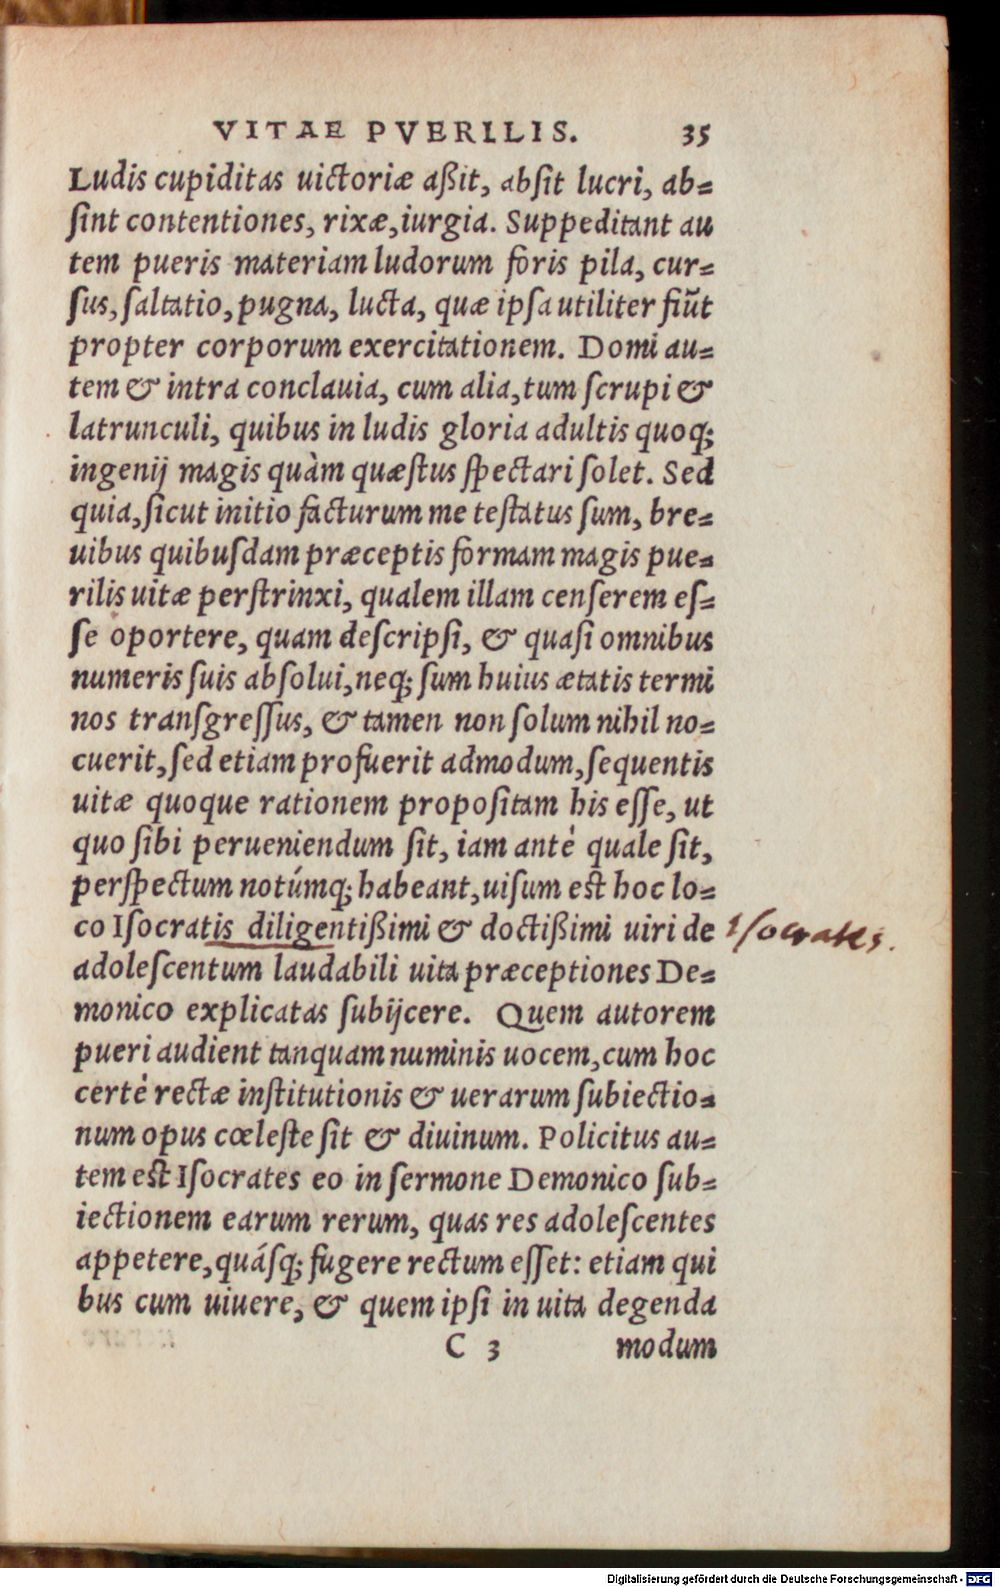 VITAE PVERILIS. 35
Ludis cupiditas uictoriæ aßit, absit lucri, ab=
sint contentiones, rixæ, iurgia. Suppeditant au
tem pueris materiam ludorum foris pila, cur=
sus, saltatio, pugna, lucta, quæ ipsa utiliter fiũt
propter corporum exercitationem. Domi au=
tem & intra conclauia, cum alia, tum scrupi &
latrunculi, quibus in ludis gloria adultis quoq;
ingenij magis quàm quæstus spectari solet. Sed
quia, sicut initio facturum me testatus sum, bre=
uibus quibusdam præceptis formam magis pue=
rilis uitæ perstrinxi, qualem illam censerem es=
se oportere, quam descripsi, & quasi omnibus
numeris suis absolui, neq; sum huius ætatis termi
nos transgressus, & tamen non solum nihil no=
cuerit, sed etiam profuerit admodum, sequentis
uitæ quoque rationem propositam his esse, ut
quo sibi perueniendum sit, iam antè quale sit,
perspectum notúmq; habeant, uisum est hoc lo=
co Isocratis diligentißimi & doctißimi uiri de
Isocrates.
adolescentum laudabili uita præceptiones De=
monico explicatas subijcere. Quem autorem
pueri audient tanquam numinis uocem, cum hoc
certè rectæ institutionis & uerarum subiectio=
num opus cœleste sit & diuinum. Policitus au=
tem est Isocrates eo in sermone Demonico sub=
iectionem earum rerum, quas res adolescentes
appetere, quásq; fugere rectum esset: etiam qui
bus cum uiuere, & quem ipsi in uita degenda
C 3 modum
Digitalisierung gefördert durch die Deutsche Forschungsgemeinschaft - DFG